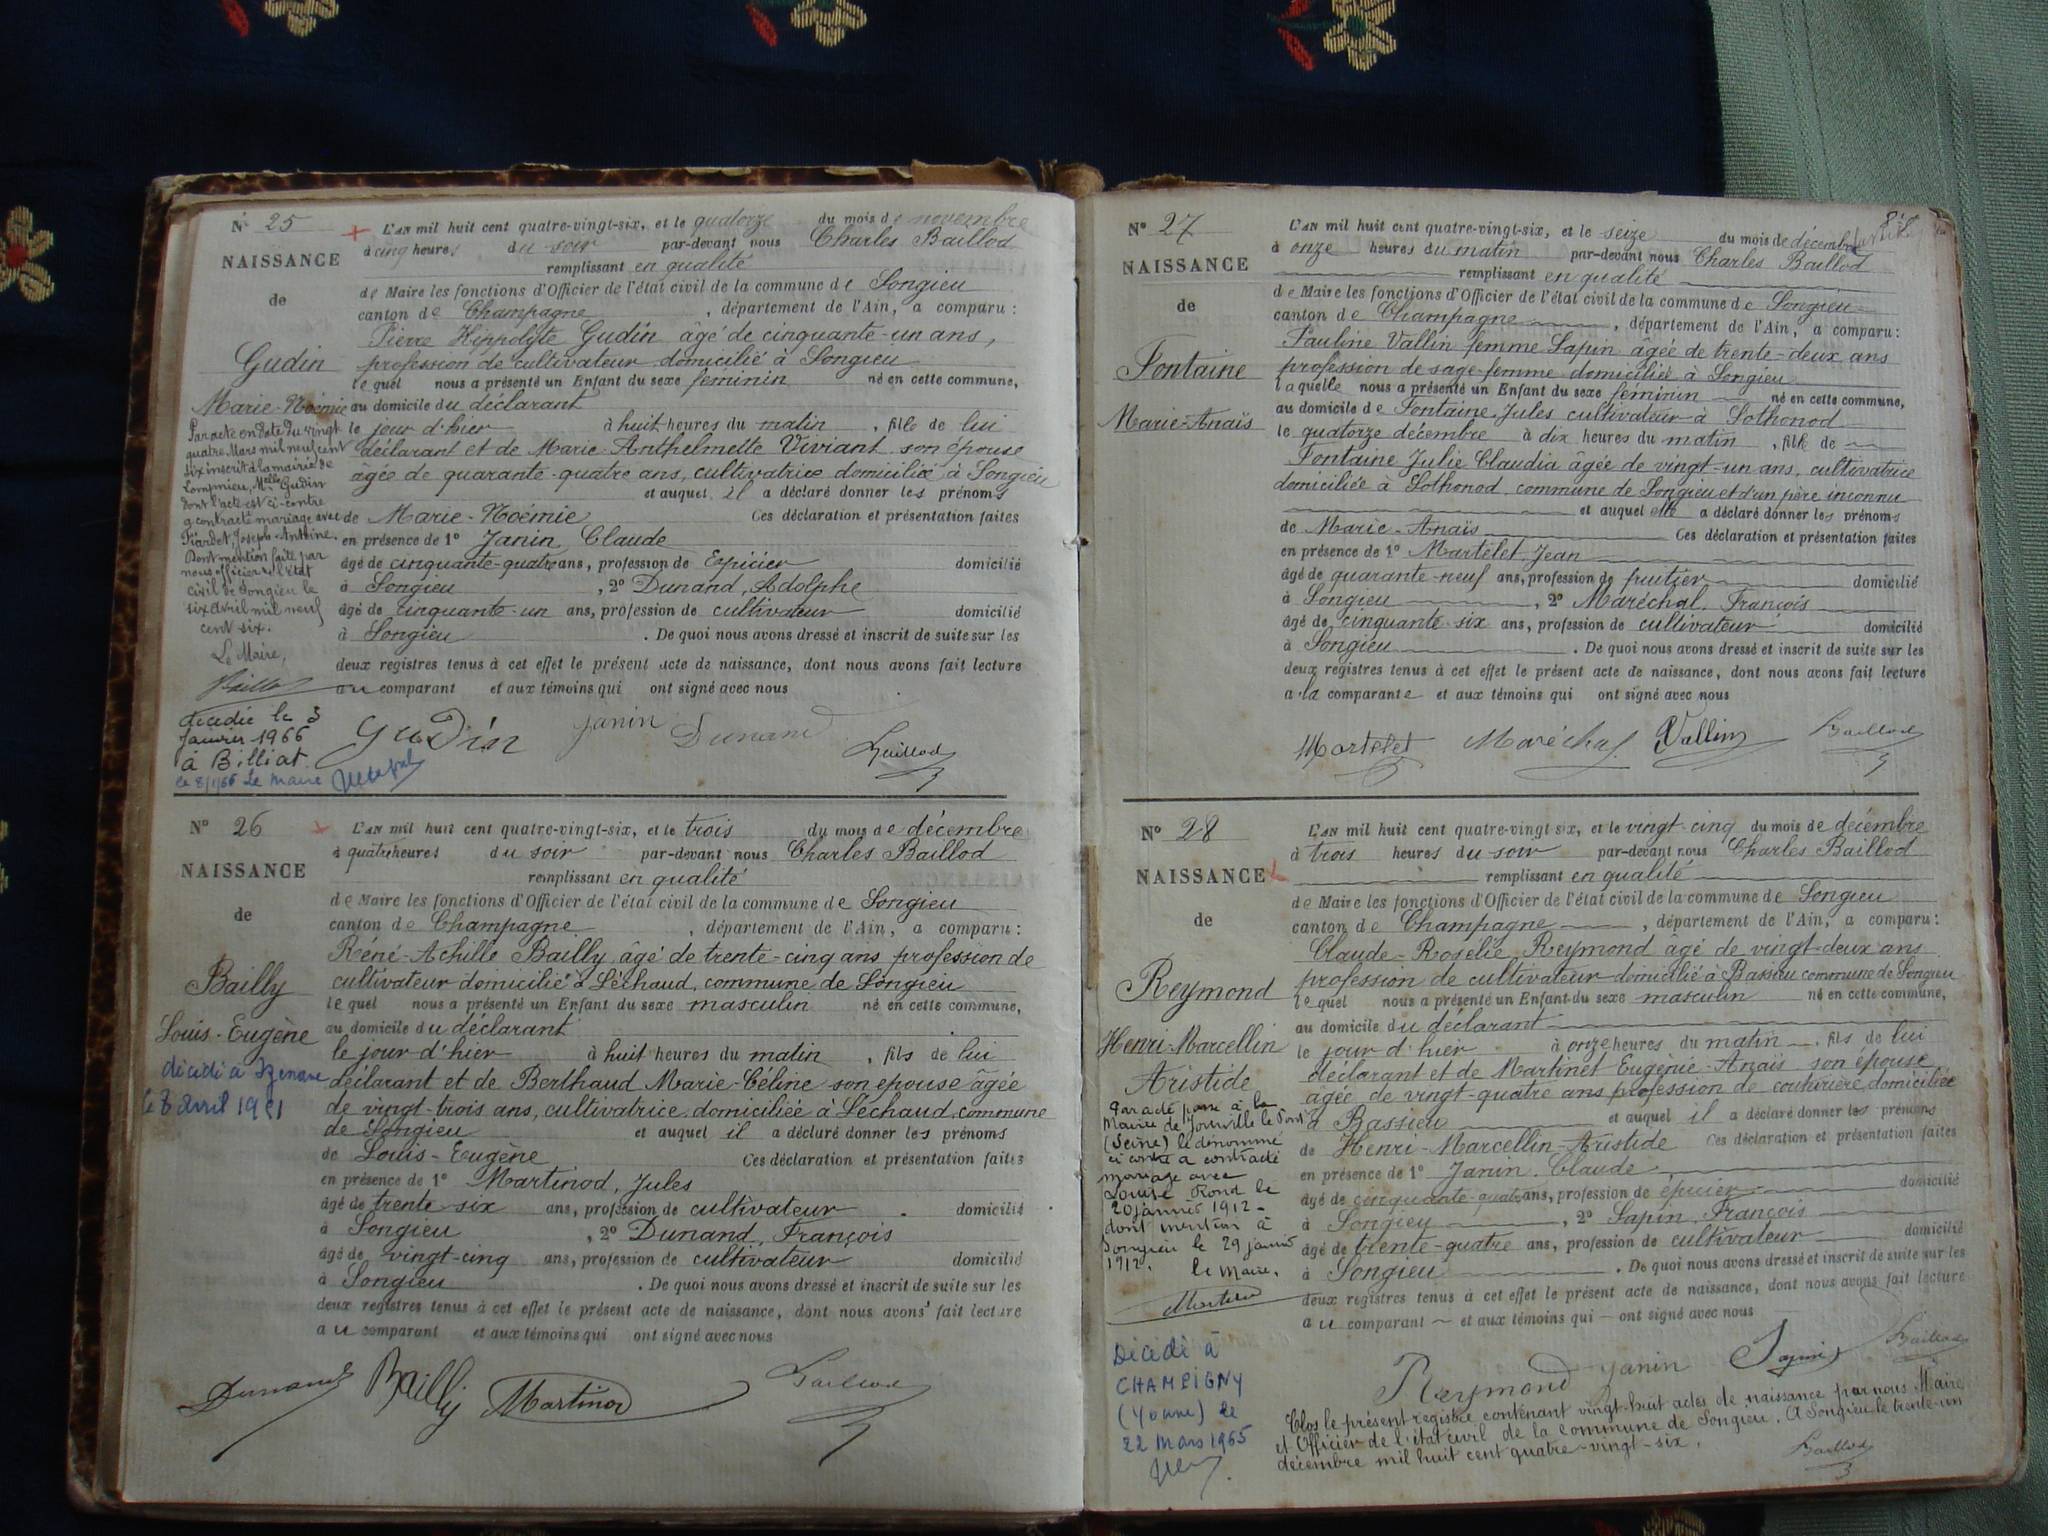 N° 25
NAISSANCE
de
Gudin
Marie-Noémie
Par acte en date du vingt
quatre Mars mil neuf cent
six inscrit à la mairie de
Lompnieu, Melle Gudin
dont l'acte est ci-contre
a contracté mariage avec
Joseph-Anthime.
Dont mention faite par
nous officier de l'état
civil de Songieu le
six avril mil neuf
cent six.
Le Maire,
décédée le 3
Janvier 1966
à Billiat.
le 8/1/66 Le Maire
L'AN mil huit cent quatre-vingt-six, et le quatorze du mois de novembre
à cinq heures du soir par-devant nous Charles Baillod
remplissant en qualité
de Maire les fonctions d'Officier de l'état civil de la commune de Songieu
canton de Champagne, département de l'Ain, a comparu :
Pierre Hippolyte Gudin âgé de cinquante-un ans,
profession de cultivateur domicilié à Songieu
lequel nous a présenté un Enfant du sexe féminin né en cette commune,
au domicile du déclarant
le jour d'hier à huit heures du matin, fille de lui
déclarant et de Marie-Anthelmette Viviant son épouse
âgée de quarante-quatre ans, cultivatrice domiciliée à Songieu
et auquel il a déclaré donner les prénoms
de Marie-Noémie Ces déclaration et présentation faites
en présence de 1° Janin, Claude
âgé de cinquante-quatre ans, profession de Epicier domicilié
à Songieu, 2° Dunand, Adolphe
âgé de cinquante-un ans, profession de cultivateur domicilié
à Songieu. De quoi nous avons dressé et inscrit de suite sur les
deux registres tenus à cet effet le présent acte de naissance, dont nous avons fait lecture
au comparant et aux témoins qui ont signé avec nous
Gudin Janin Dunand Baillod
N° 26
NAISSANCE
de
Bailly
Louis-Eugène
décédé à
le 8 avril 19
L'AN mil huit cent quatre-vingt-six, et le trois du mois de décembre
à quatre heures du soir par-devant nous Charles Baillod
remplissant en qualité
de Maire les fonctions d'Officier de l'état civil de la commune de Songieu
canton de Champagne, département de l'Ain, a comparu :
Réné-Achille Bailly, âgé de trente-cinq ans profession de
cultivateur domicilié à Séchaud, commune de Songieu
lequel nous a présenté un Enfant du sexe masculin né en cette commune,
au domicile du déclarant
le jour d'hier à huit heures du matin, fils de lui
déclarant et de Berthaud Marie-Céline son épouse âgée
de vingt-trois ans, cultivatrice domiciliée à Séchaud, commune
de Songieu et auquel il a déclaré donner les prénoms
de Louis-Eugène Ces déclaration et présentation faites
en présence de 1° Martinod, Jules
âgé de trente six ans, profession de cultivateur domicilié
à Songieu, 2° Dunand, François
âgé de vingt-cinq ans, profession de cultivateur domicilié
à Songieu. De quoi nous avons dressé et inscrit de suite sur les
deux registres tenus à cet effet le présent acte de naissance, dont nous avons fait lecture
au comparant et aux témoins qui ont signé avec nous
Dunand Bailly Martinod Baillod
N° 27
NAISSANCE
de
Fontaine
Marie-Anaïs
L'AN mil huit cent quatre-vingt-six, et le seize du mois de décembre
à onze heures du matin par-devant nous Charles Baillod
remplissant en qualité
de Maire les fonctions d'Officier de l'état civil de la commune de Songieu
canton de Champagne, département de l'Ain, a comparu :
Pauline Vallin femme Sapin âgée de trente-deux ans
profession de sage-femme domiciliée à Songieu
laquelle nous a présenté un Enfant du sexe féminin né en cette commune,
au domicile de Fontaine Jules cultivateur à Sothonod
le quatorze décembre à dix heures du matin, fille de
Fontaine Julie Claudia âgée de vingt-un ans, cultivatrice
domiciliée à Sothonod, commune de Songieu et d'un père inconnu
et auquel elle a déclaré donner les prénoms
de Marie-Anaïs Ces déclaration et présentation faites
en présence de 1° Martelet Jean
âgé de quarante-neuf ans, profession de fruitier domicilié
à Songieu, 2° Maréchal, François
âgé de cinquante-six ans, profession de cultivateur domicilié
à Songieu. De quoi nous avons dressé et inscrit de suite sur les
deux registres tenus à cet effet le présent acte de naissance, dont nous avons fait lecture
a la comparante et aux témoins qui ont signé avec nous
Martelet Maréchal Vallin Baillod
N° 28
NAISSANCE
de
Reymond
Henri-Marcellin
Aristide
Par acte passé à la
Mairie de Joinville le Pont
(Seine) le dénommé
ci contre a contracté
mariage avec
Louise Rond le
20 janvier 1912 -
dont mention à
Songieu le 29 janvier
1912. le Maire,
Décédé à
CHAMPIGNY
(Yonne) le
22 mars 1965
L'AN mil huit cent quatre-vingt six, et le vingt-cinq du mois de décembre
à trois heures du soir par-devant nous Charles Baillod
remplissant en qualité
de Maire les fonctions d'Officier de l'état civil de la commune de Songieu
canton de Champagne, département de l'Ain, a comparu :
Claude-Roselie Reymond âgé de vingt-deux ans
profession de cultivateur domicilié à Bassieu commune de Songieu
lequel nous a présenté un Enfant du sexe masculin né en cette commune,
au domicile du déclarant
le jour d'hier à onze heures du matin, fils de lui
déclarant et de Martinet Eugènie-Anaïs son épouse
âgée de vingt-quatre ans profession de couturière domiciliée
à Bassieu et auquel il a déclaré donner les prénoms
de Henri-Marcellin-Aristide Ces déclaration et présentation faites
en présence de 1° Janin, Claude
âgé de cinquante-quatre ans, profession de épicier domicilié
à Songieu, 2° Sapin, François
âgé de trente-quatre ans, profession de cultivateur domicilié
à Songieu. De quoi nous avons dressé et inscrit de suite sur les
deux registres tenus à cet effet le présent acte de naissance, dont nous avons fait lecture
au comparant et aux témoins qui ont signé avec nous
Reymond Janin Sapin Baillod
Clos le présent registre contenant vingt-huit actes de naissance par nous Maire
et Officier de l'état civil de la commune de Songieu. A Songieu le trente-un
décembre mil huit cent quatre-vingt-six.
Baillod